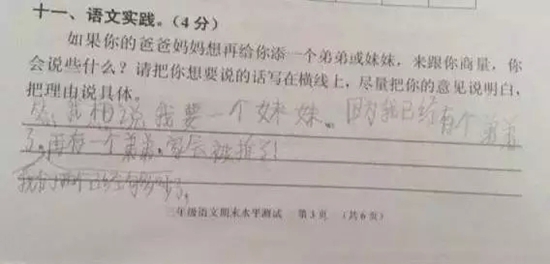 十一、语文实践。(4分)
如果你的爸爸妈妈想再给你添一个弟弟或妹妹，来跟你商量，你
会说些什么？请把你想要说的话写在横线上，尽量把你的意见说明白，
把理由说具体。
答：我相说我要一个妹妹。因为我已经有个弟弟
了，再有一个弟弟，家会被拆了！
我们两个已经
三年级语文期末水平测试 第3页 (共6页)